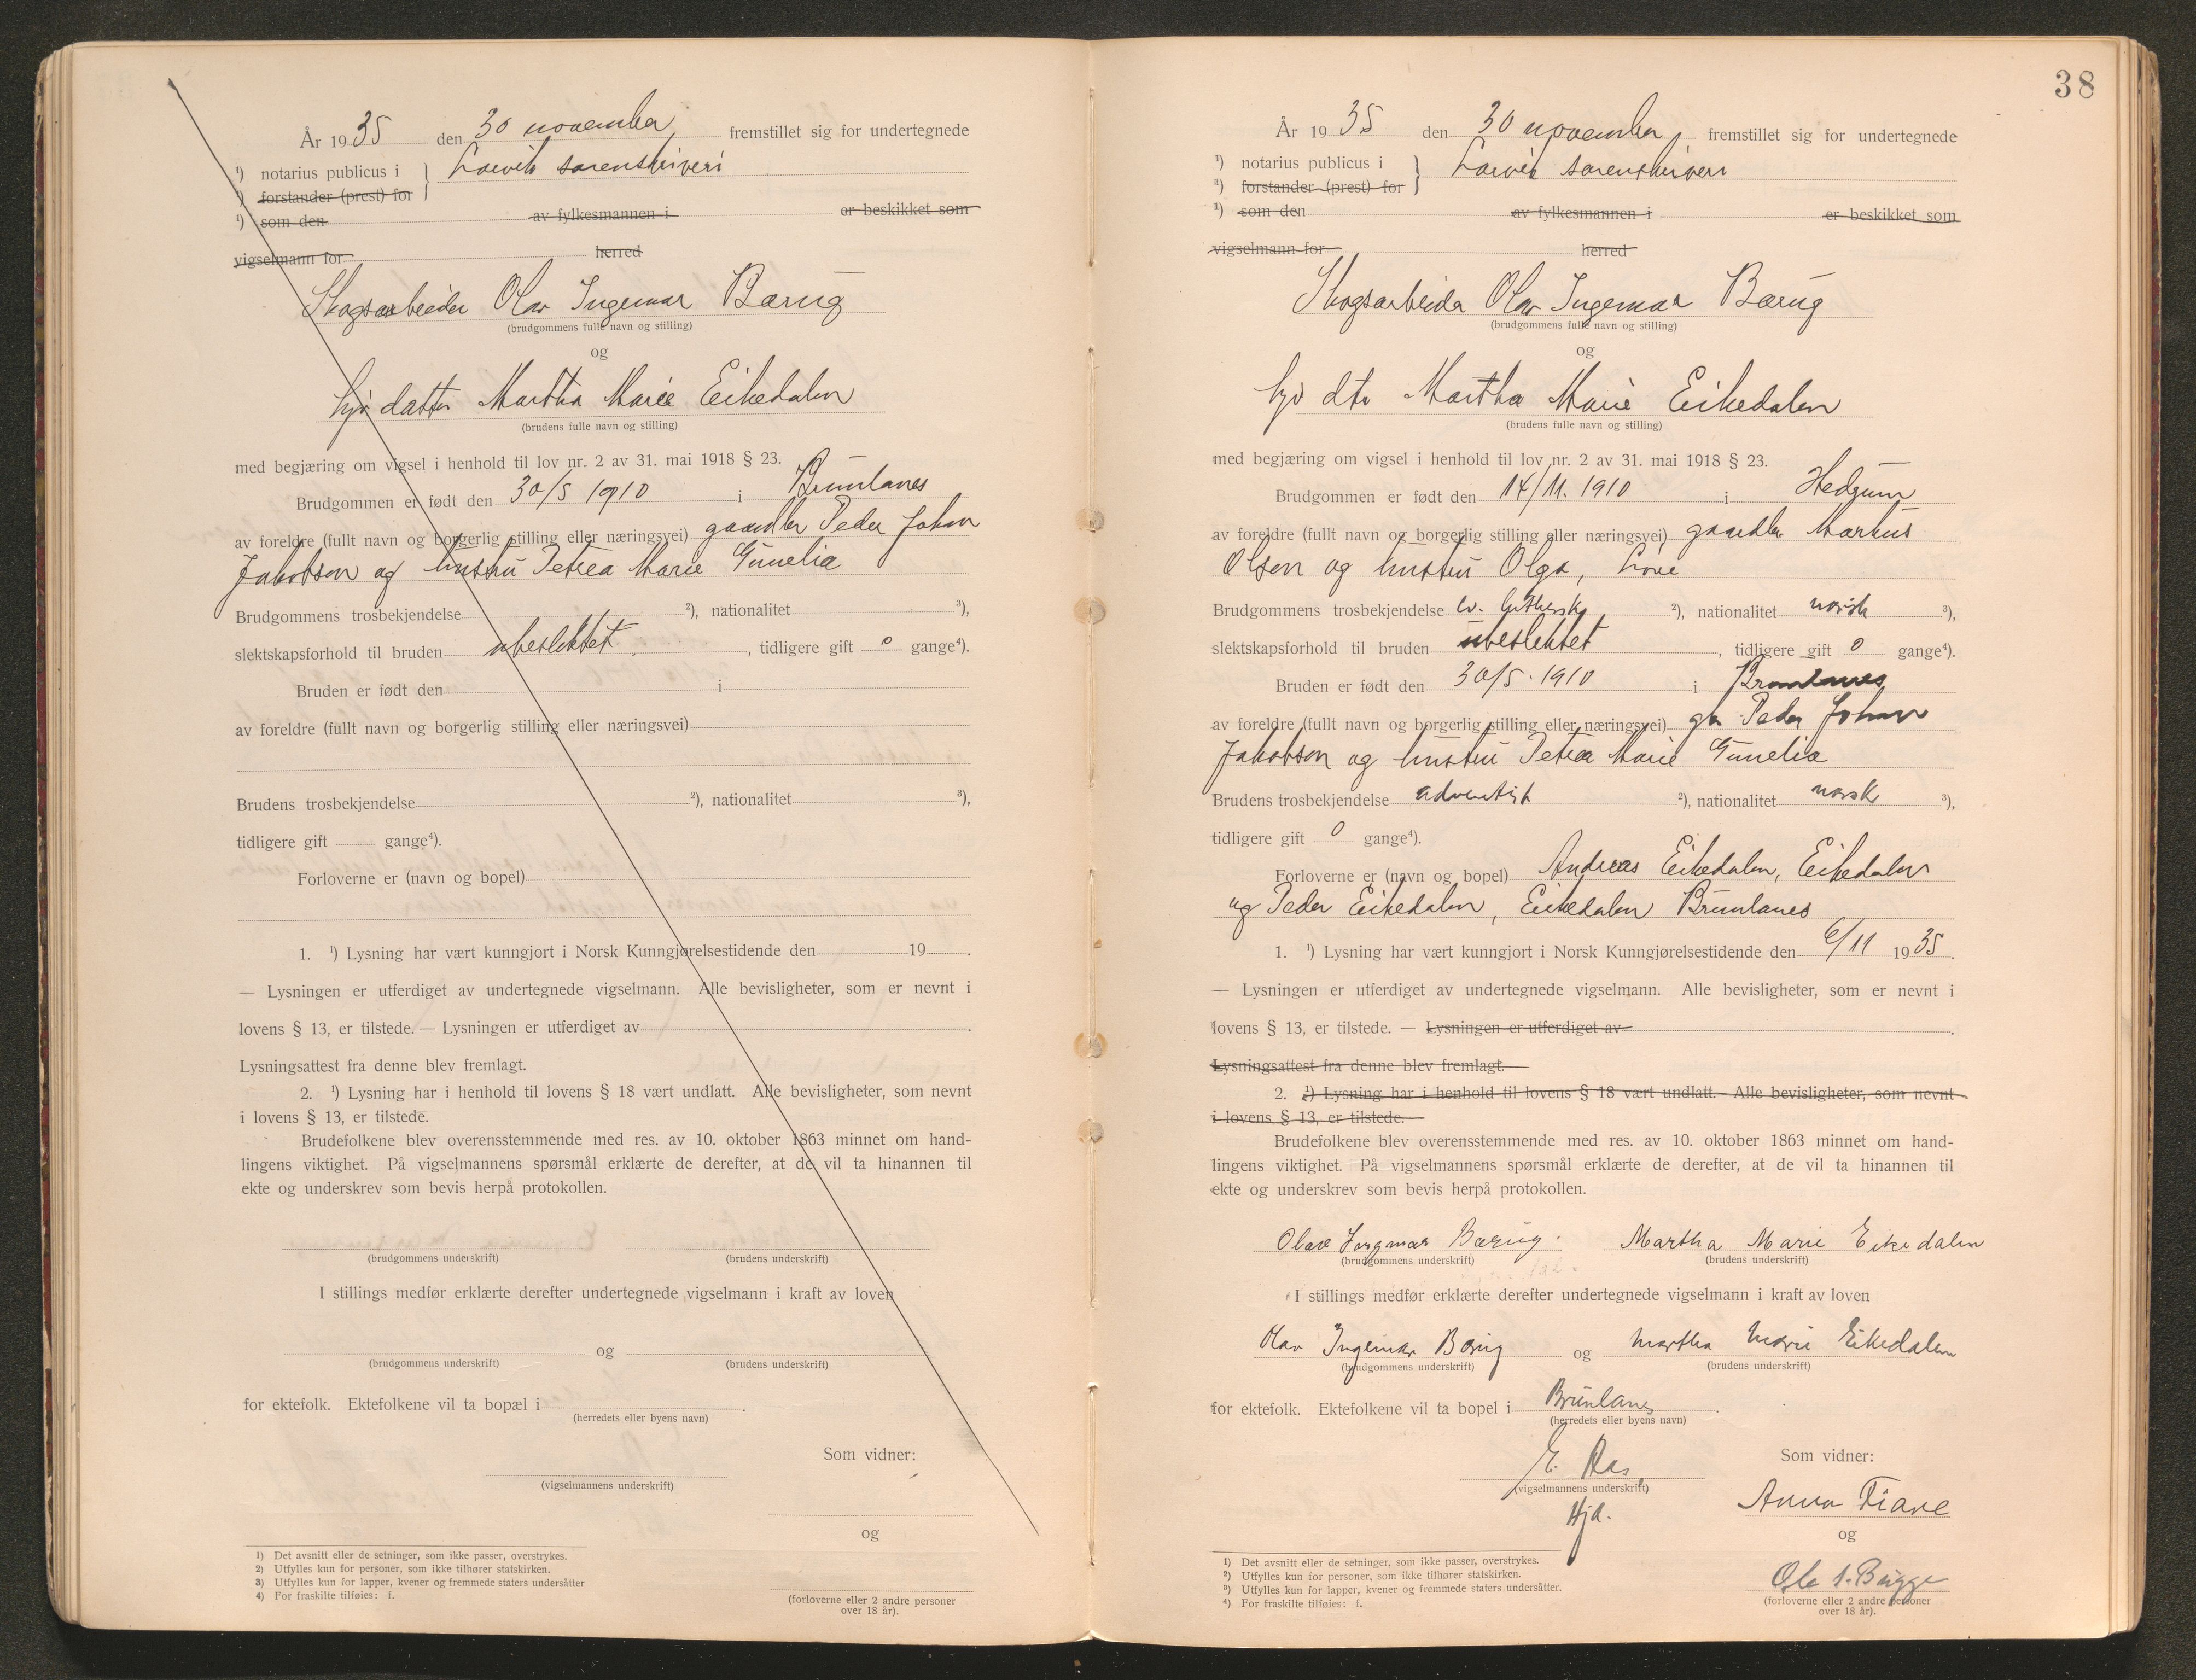 År 1935 den 30 november fremstillet sig for undertegnede
¹) notarius publicus i } Larvik sorenskriveri
¹) forstander (prest) for
¹) som den av fylkesmannen i er beskikket som
vigselmann for herred
Skogsarbeider Olav Ingemar Barug
(brudgommens fulle navn og stilling)
og
hj datter Martha Marie Eikedalen
(brudens fulle navn og stilling)
med begjæring om vigsel i henhold til lov nr. 2 av 31. mai 1918 § 23.
Brudgommen er født den 30/5 1910 i Brunlanes
av foreldre (fullt navn og borgerlig stilling eller næringsvei) gaardbr Peder Johan
Jakobsen og hustru Petrea Marie Gunelia
Brudgommens trosbekjendelse ²), nationalitet ³),
slektskapsforhold til bruden ubeslektet, tidligere gift 0 gange⁴).
Bruden er født den i
av foreldre (fullt navn og borgerlig stilling eller næringsvei)
Brudens trosbekjendelse ²), nationalitet ³),
tidligere gift gange⁴).
Forloverne er (navn og bopel)
1. ¹) Lysning har vært kunngjort i Norsk Kunngjørelsestidende den 19 .
— Lysningen er utferdiget av undertegnede vigselmann. Alle bevisligheter, som er nevnt i
lovens § 13, er tilstede. — Lysningen er utferdiget av .
Lysningsattest fra denne blev fremlagt.
2. ¹) Lysning har i henhold til lovens § 18 vært undlatt. Alle bevisligheter, som nevnt
i lovens § 13, er tilstede.
Brudefolkene blev overensstemmende med res. av 10. oktober 1863 minnet om hand-
lingens viktighet. På vigselmannens spørsmål erklærte de derefter, at de vil ta hinannen til
ekte og underskrev som bevis herpå protokollen.
(brudgommens underskrift) (brudens underskrift)
I stillings medfør erklærte derefter undertegnede vigselmann i kraft av loven
og
(brudgommens underskrift) (brudens underskrift)
for ektefolk. Ektefolkene vil ta bopæl i .
(herredets eller byens navn)
Som vidner:
(vigselmannens underskrift)
og
1) Det avsnitt eller de setninger, som ikke passer, overstrykes.
2) Utfylles kun for personer, som ikke tilhører statskirken.
3) Utfylles kun for lapper, kvener og fremmede staters undersåtter
4) For fraskilte tilføies: f.
(forloverne eller 2 andre personer
over 18 år).
38
År 1935 den 30 november fremstillet sig for undertegnede
¹) notarius publicus i } Larvik sorenskriveri
¹) forstander (prest) for
¹) som den av fylkesmannen i er beskikket som
vigselmann for herred
Skogsarbeider Olav Ingemar Barug
(brudgommens fulle navn og stilling)
og
hj dtr Martha Marie Eikedalen
(brudens fulle navn og stilling)
med begjæring om vigsel i henhold til lov nr. 2 av 31. mai 1918 § 23.
Brudgommen er født den 14/11. 1910 i Hedrum
av foreldre (fullt navn og borgerlig stilling eller næringsvei) gaardbr Markus
Olsen og hustru Olga,
Brudgommens trosbekjendelse ev. luthersk ²), nationalitet norsk ³),
slektskapsforhold til bruden ubeslektet, tidligere gift 0 gange⁴).
Bruden er født den 30/5. 1910 i Brunlanes
av foreldre (fullt navn og borgerlig stilling eller næringsvei) gbr Peder Johan
Jakobsen og hustru Petrea Marie Gunelia
Brudens trosbekjendelse adventist ²), nationalitet norsk ³),
tidligere gift 0 gange⁴).
Forloverne er (navn og bopel) Andreas Eikedalen, Eikedalen
og Peder Eikedalen, Eikedalen Brunlanes
1. ¹) Lysning har vært kunngjort i Norsk Kunngjørelsestidende den 6/11 1935.
— Lysningen er utferdiget av undertegnede vigselmann. Alle bevisligheter, som er nevnt i
lovens § 13, er tilstede. — Lysningen er utferdiget av .
Lysningsattest fra denne blev fremlagt.
2. ¹) Lysning har i henhold til lovens § 18 vært undlatt. Alle bevisligheter, som nevnt
i lovens § 13, er tilstede.
Brudefolkene blev overensstemmende med res. av 10. oktober 1863 minnet om hand-
lingens viktighet. På vigselmannens spørsmål erklærte de derefter, at de vil ta hinannen til
ekte og underskrev som bevis herpå protokollen.
Olav Ingmar Barug. Martha Marie Eikedalen
(brudgommens underskrift) (brudens underskrift)
I stillings medfør erklærte derefter undertegnede vigselmann i kraft av loven
Olav Ingemar Barug og Martha Marie Eikedalen
(brudgommens underskrift) (brudens underskrift)
for ektefolk. Ektefolkene vil ta bopel i Brunlanes.
(herredets eller byens navn)
E. Aas Som vidner:
(vigselmannens underskrift)
Hjd. Anna Tiane
og
1) Det avsnitt eller de setninger, som ikke passer, overstrykes.
2) Utfylles kun for personer, som ikke tilhører statskirken.
3) Utfylles kun for lapper, kvener og fremmede staters undersåtter.
4) For fraskilte tilføies: f.
Ole S. Brygge
(forloverne eller 2 andre personer
over 18 år).